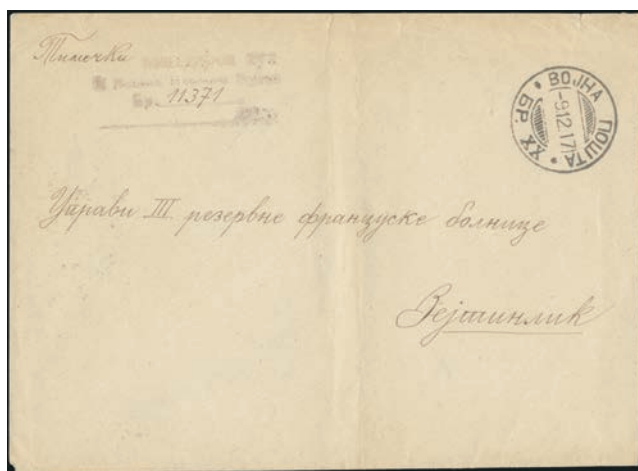 Тимочки
Бр. 11371
ВОЈНА ПОШТА
-9.12.17
БР. XX
Управи III резервне француске болнице
Зејтинлик